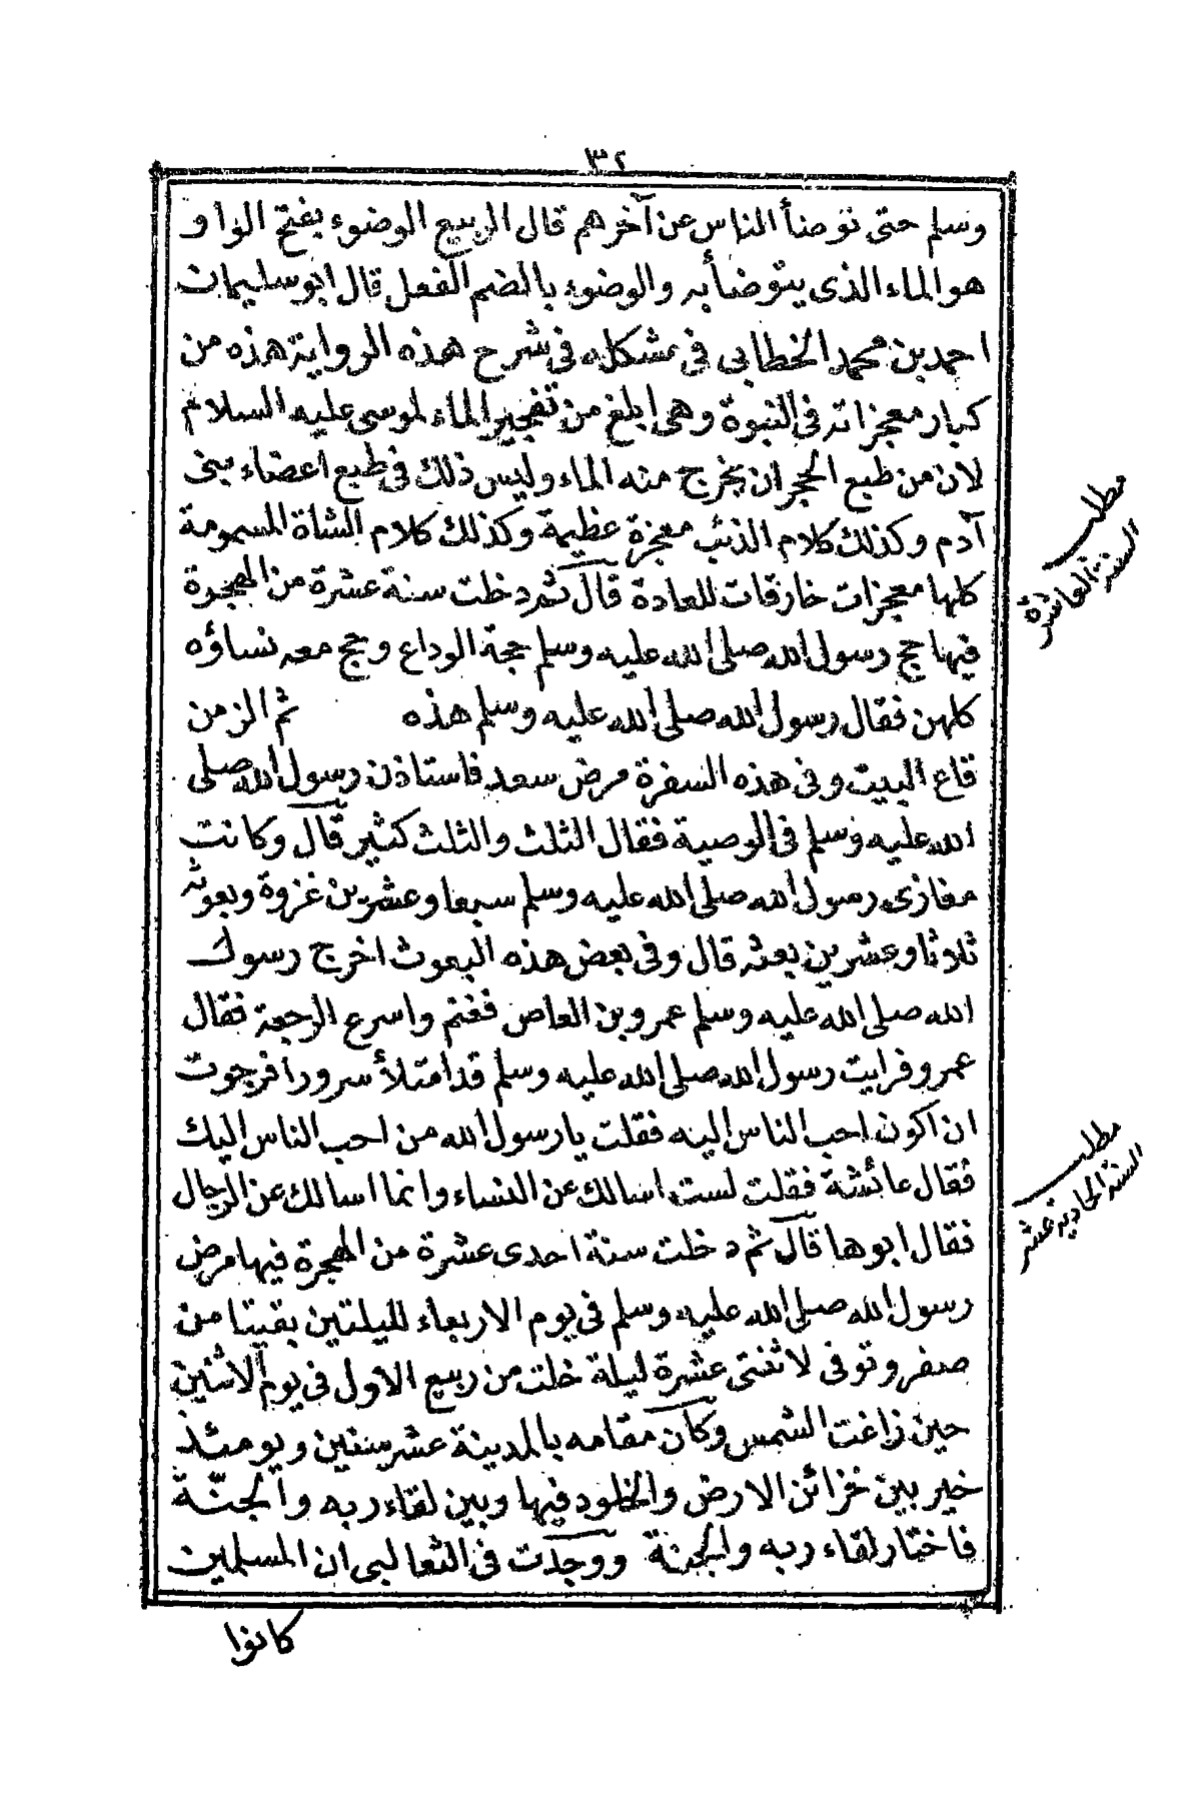 ٣٢
وسلم حتى توضأ الناس عن آخرهم قال الربيع الوضوء بفتح الواو
هو الماء الذى يتوضأ به والوضوء بالضم الفعل قال ابو سليمان
احمد بن محمد الخطابي فى مشكله فى شرح هذه الرواية هذه من
كبار معجزاته فى النبوة وهى ابلغ من تفجير الماء لموسى عليه السلام
لان من طبع الحجر ان يخرج منه الماء وليس ذلك فى طبع اعضاء بنى
آدم وكذلك كلام الذئب معجزة عظيمة وكذلك كلام الشاة المسمومة
كلها معجزات خارقات للعادة قال ثم دخلت سنة عشرة من الهجرة
فيها حج رسول الله صلى الله عليه وسلم حجة الوداع وحج معه نساؤه
كلهن فقال رسول الله صلى الله عليه وسلم هذه ثم الزمن
قاع البيت وفى هذه السفرة مرض سعد فاستاذن رسول الله صلى
الله عليه وسلم فى الوصية فقال الثلث والثلث كثير قال وكانت
مغازى رسول الله صلى الله عليه وسلم سبعا وعشرين غزوة وبعوثه
ثلاثا وعشرين بعثه قال وفى بعض هذه البعوث اخرج رسول
الله صلى الله عليه وسلم عمرو بن العاص فغنم واسرع الرجعة فقال
عمرو فرايت رسول الله صلى الله عليه وسلم قد امتلأ سرورا فرجوت
ان اكون احب الناس اليه فقلت يا رسول الله من احب الناس اليك
فقال عائشة فقلت لست اسالك عن النساء وانما اسالك عن الرجال
فقال ابوها قال ثم دخلت سنة احدى عشرة من الهجرة فيها مرض
رسول الله صلى الله عليه وسلم فى يوم الاربعاء لليلتين بقيتا من
صفر وتوفى لاثنتى عشرة ليلة خلت من ربيع الاول فى يوم الاثنين
حين زاغت الشمس وكان مقامه بالمدينة عشر سنين ويومئذ
خير بين خزائن الارض والخلود فيها وبين لقاء ربه والجنّة
فاختار لقاء ربه والجنة ووجدت فى الثعالبى ان المسلمين
كانوا
مطلب
السنة العاشرة
مطلب
السنة الحادية عشر